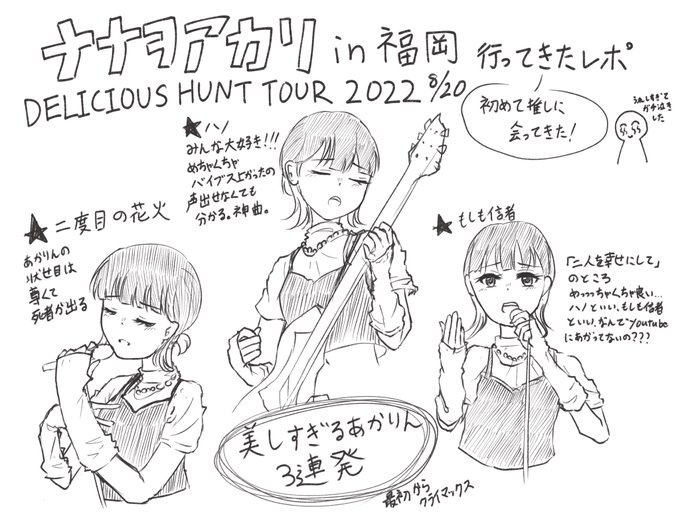 ナナヲアカリ in 福岡 行ってきたレポ
DELICIOUS HUNT TOUR 2022 8/20
初めて推しに
会ってきた!
流しすぎて
ガチ泣き
した
★ハノ
みんな大好き!!!
めちゃくちゃ
バイブス上がったの
声出せなくても
分かる。神曲。
★二度目の花火
あかりんの
伏せ目は
尊くて
死者が出る
★もしも信者
「二人を幸せにして」
のところ
めっっっちゃくちゃ良い…
ハノといい、もしも信者
といい、なんでYoutube
にあがってないの???
美しすぎるあかりん
3連発
最初から
クライマックス